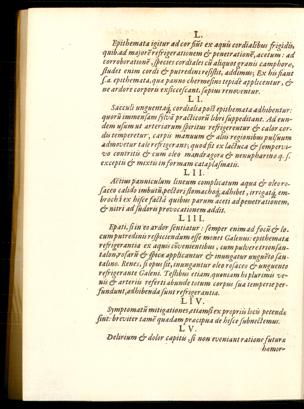 L.
Epithemata igitur ad cor fiūt ex aquis cordialibus frigidis,
quib. ad maiorē refrigerationem & penetrationē, acetum: ad
corroborationē, species cordiales cū aliquot granis camphoræ,
siudet enim cordi & putredini resistit, addimus; Ex his fiant
s.a. epithemata, quæ panno chermesino tepidè applicentur, &
ne ardore corporu exsiccescant, sæpius renoventur.
L I.
Sacculi unguentaq́; cordialia post epithemata adhibentur:
quorū immensam sylvā practicorū libri suppeditant. Ad eun-
dem usum ut arteriarum spiritus refrigerentur & calor cor-
dis temperetur, carpis manuum & aliis regionibus pulsuum
admovet tale refrigerans, quod fit ex lactuca & sempervi-
vo contritis & cum oleo mandragoræ & nenupharino q. s.
exceptis & mixtis in formam cataplasmatis.
L I I.
Actius panniculum linteum complicatum aqua & oleo ro-
saceo calido imbutū, pectori, stomachoq́; adhibet, irrogatq́; em-
brochē ex hisce factā quibus parum aceti ad penetrationem,
& nitri ad sudoris provocationem addit.
L I I I.
Epati, si in eo ardor sentiatur, semper enim ad focū & lo-
cum putredinis respiciendum esse monet Galenus: epithemata
refrigerantia ex aquis cōvenientibus, cum pulvere trion san-
talon, rosarū & spicæ applicantur & inungatur unguēto san-
talino. Renes, si opus sit, inungantur oleo rosaceo & unguento
refrigerante Galeni. Testibus etiam, quoniam hi plurimis ve-
nis & arteriis referti abunde totum corpus sua temperie per-
fundunt, adhibenda sunt refrigerantia.
L I V.
Symptomatū mitigationes, etiamsi ex propriis locis petendæ
sint: breviter tamē quædam præcipua de hisce subnectemus.
L V.
Delirium & dolor capitis, si non eveniant ratione futuræ
hæmor-